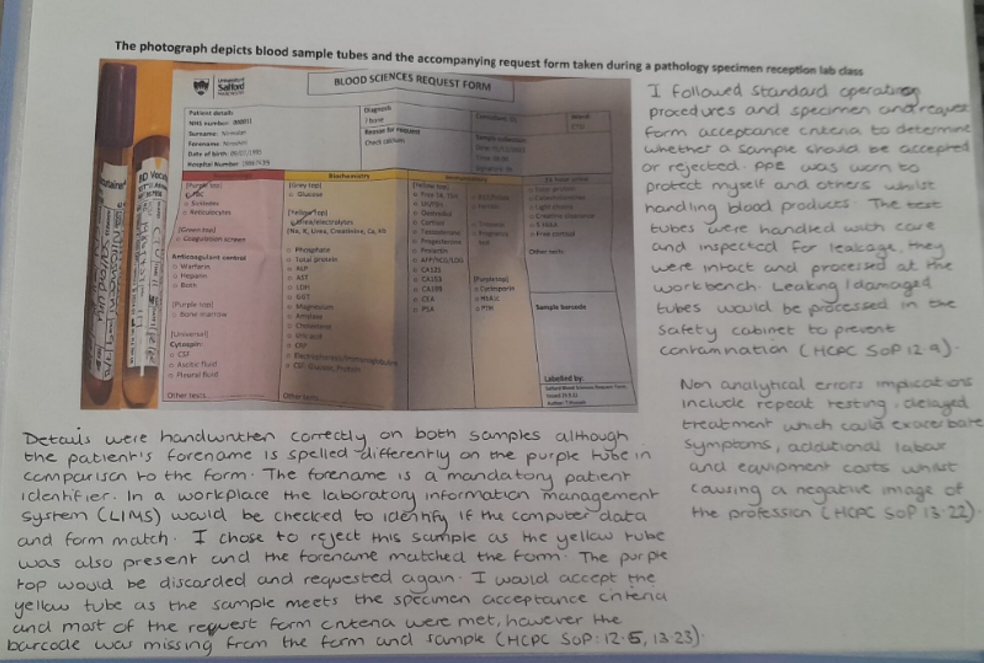 The photograph depicts blood sample tubes and the accompanying request form taken during a pathology specimen reception lab class
University of
Salford
MANCHESTER
BLOOD SCIENCES REQUEST FORM
Patient details
NHS number:
Surname:
Forename:
Date of birth:
Hospital Number:
Diagnosis
? bone
Reason for request
Check calcium
Consultant:
Ward:
Sample collection
Date:
Time:
Signature:
[Purple top]
FBC
Sickledex
Reticulocytes
[Green top]
Coagulation screen
Anticoagulant control
Warfarin
Heparin
Both
[Purple top]
Bone marrow
[Universal]
Cytospin:
CSF
Ascitic fluid
Pleural fluid
Other tests
Biochemistry
[Grey top]
Glucose
[Yellow top]
Urea/electrolytes
(Na, K, Urea, Creatinine, Ca, Alb
Phosphate
Total protein
ALP
AST
LDH
GGT
Magnesium
Amylase
Cholesterol
Uric acid
CRP
Electrophoresis/Immunoglobulins
CSF: Glucose, Protein
Other tests
Immunoassay
[Yellow top]
Free T4, TSH
LH/FSH
Oestradiol
Cortisol
Testosterone
Progesterone
Prolactin
AFP/HCG/LDG
CA125
CA153
CA199
CEA
PSA
Ferritin
Troponin
Pregnancy
test
[Purple top]
Cyclosporin
HbA1C
PTH
24 hour urine
Total protein
Catecholamines
Light chains
Creatine clearance
5 HIAA
Free cortisol
Other tests
Sample barcode
Labelled by:
Salford Blood Sciences Request Form
I followed standard operating
procedures and specimen and request
form acceptance criteria to determine
whether a sample should be accepted
or rejected. PPE was worn to
protect myself and others whilst
handling blood products. The test
tubes were handled with care
and inspected for leakage, they
were intact and processed at the
workbench. Leaking/damaged
tubes would be processed in the
safety cabinet to prevent
contamnation (HCPC SOP 12.9).
Non analytical errors implications
include repeat testing, delayed
treatment which could exacerbate
symptoms, additional labour
and equipment costs whilst
causing a negative image of
the profession (HCPC SOP 13.22).
Details were handwritten correctly on both samples although
the patient's forename is spelled differently on the purple tube in
comparison to the form. The forename is a mandatory patient
identifier. In a workplace the laboratory information management
system (LIMS) would be checked to identify if the computer data
and form match. I chose to reject this sample as the yellow tube
was also present and the forename matched the form. The purple
top would be discarded and requested again. I would accept the
yellow tube as the sample meets the specimen acceptance criteria
and most of the request form criteria were met, however the
barcode was missing from the form and sample (HCPC SOP: 12.5, 13.23).